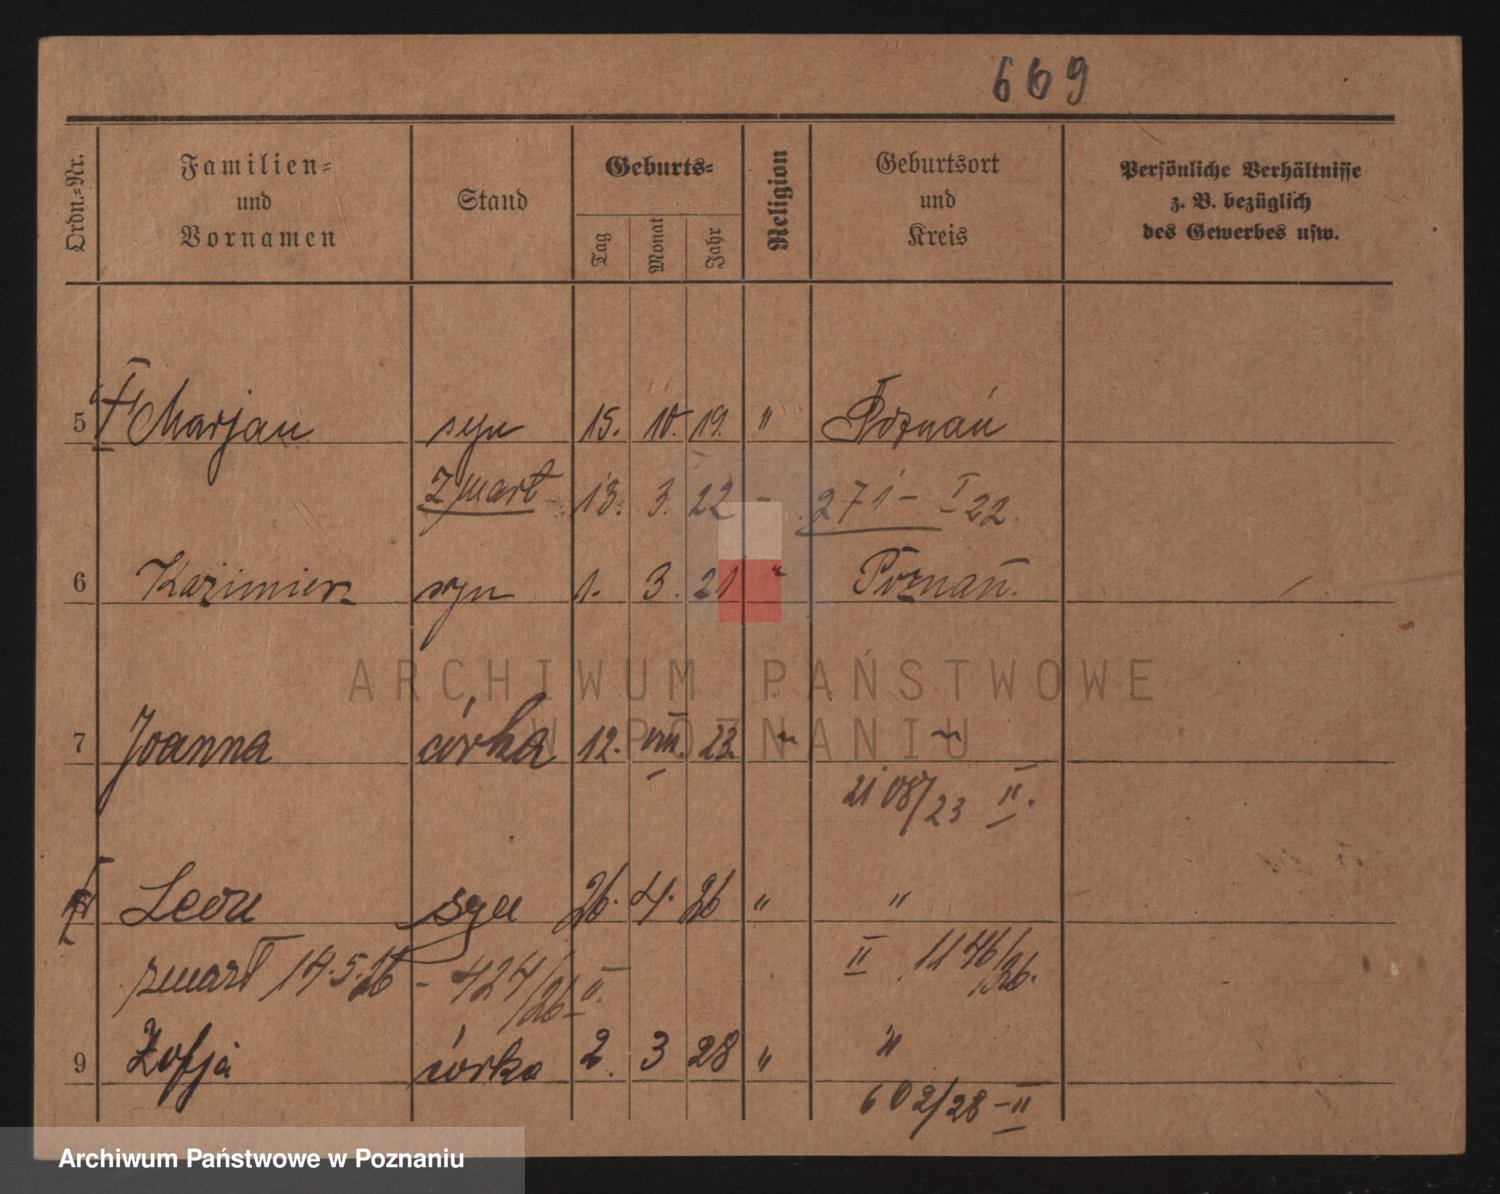 669
Ordn.=Nr. Familien= und Vornamen Stand Geburts= Tag Monat Jahr Religion Geburtsort und Kreis Persönliche Verhältnisse z. B. bezüglich des Gewerbes usw.
5 † Marjan syn 15. 10. 19. " Poznań
zmarł 13. 3. 22 - 271 - I 22.
6 Kazimierz syn 1. 3. 21 " Poznań.
ARCHIWUM PAŃSTWOWE
W POZNANIU
7 Joanna córka 12. VIII. 23. " "
2108/23 II.
† Leon syn 26. 4. 26 " "
zmarł 14.5.26 - 424/26 II. II 1146/26.
9 Zofja córka 2. 3 28 " "
602/28 - II
Archiwum Państwowe w Poznaniu